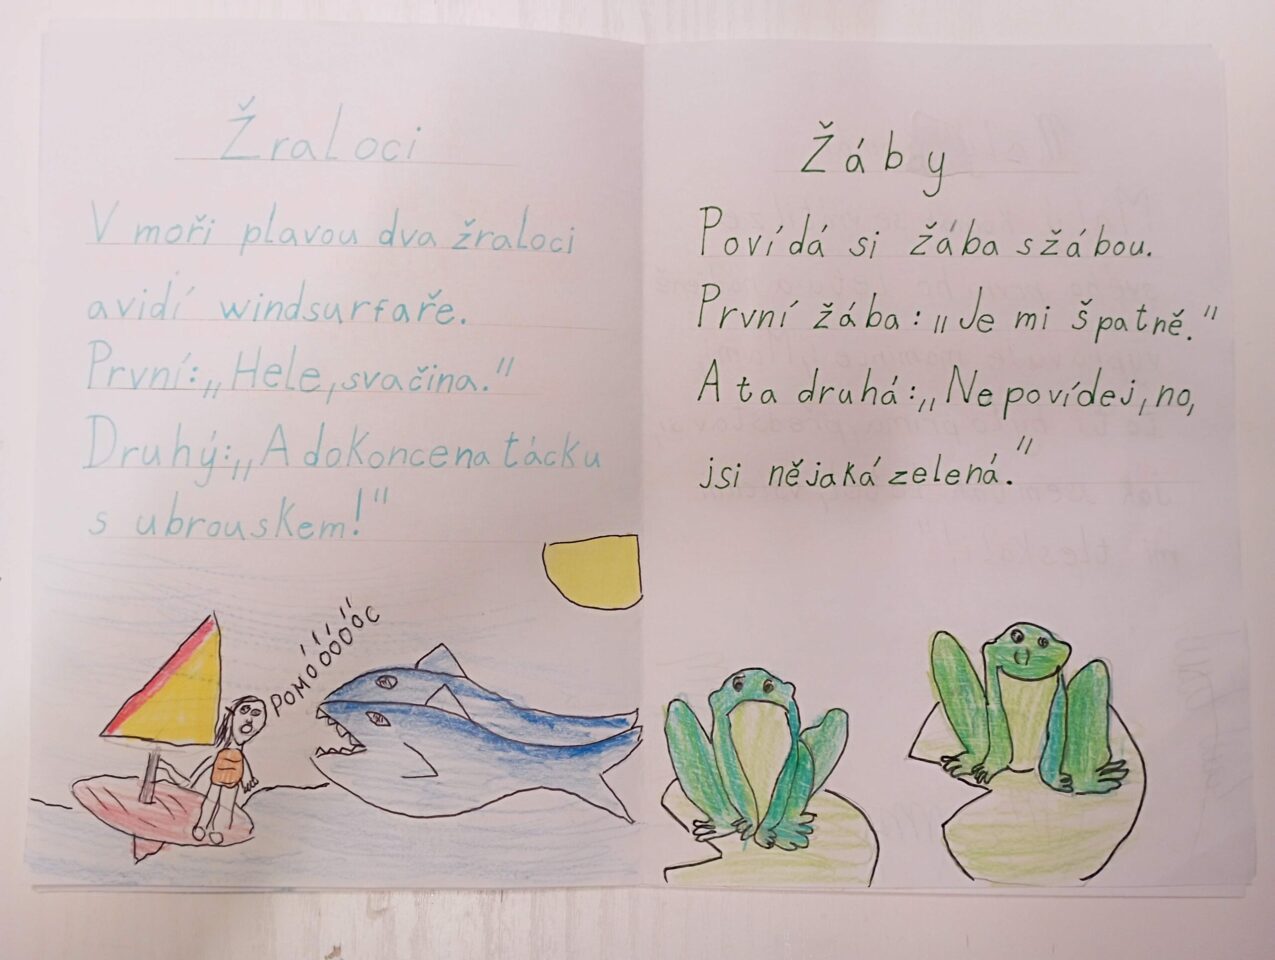 Žraloci
V moři plavou dva žraloci
a vidí windsurfaře.
První:„Hele, svačina."
Druhý:„A dokonce na tácku
s ubrouskem!"
POMÓÓÓÓC
Žáby
Povídá si žába s žábou.
První žába:„Je mi špatně."
A ta druhá:„Nepovídej, no,
jsi nějaká zelená."